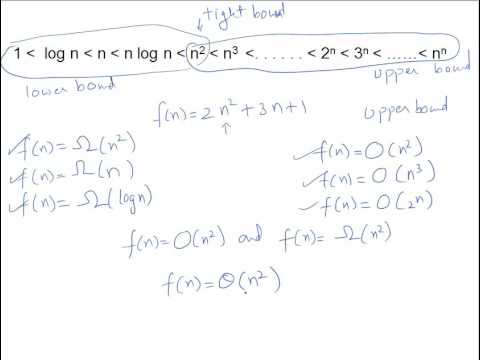 tight bound
1 < log n < n < n log n < n² < n³ < . . . . . . < 2ⁿ < 3ⁿ < ...... < nⁿ
lower bond
upper bond
f(n) = 2n² + 3n + 1
upper bound
f(n) = Ω(n²)
f(n) = Ω(n)
f(n) = Ω(log n)
f(n) = O(n²)
f(n) = O(n³)
f(n) = O(2ⁿ)
f(n) = O(n²) and f(n) = Ω(n²)
f(n) = Θ(n²)